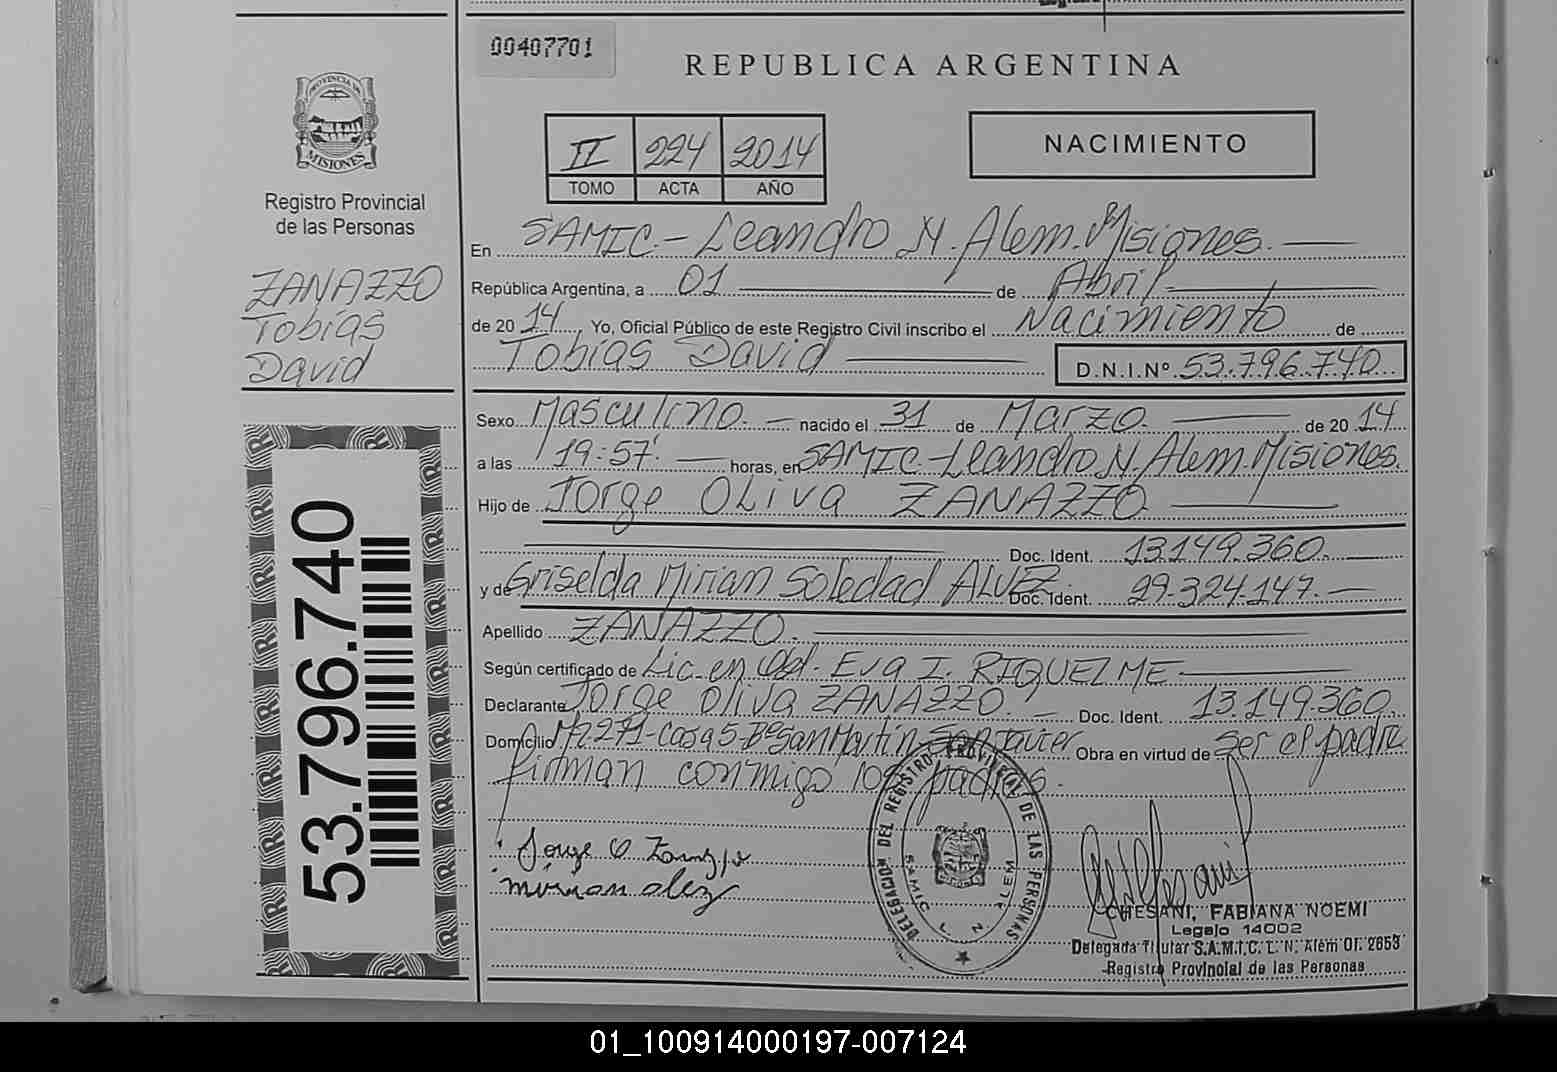 00407701
REPUBLICA ARGENTINA
PROVINCIA DE
MISIONES
Registro Provincial
de las Personas
ZANAZZO
Tobías
David
II 224 2014
TOMO ACTA AÑO
NACIMIENTO
En SAMIC.- Leandro N. Alem. Misiones.
República Argentina, a 01 de Abril
de 20 14, Yo, Oficial Público de este Registro Civil inscribo el Nacimiento de
Tobías David D.N.I.Nº 53.796.740
Sexo Masculino. nacido el 31 de Marzo. de 20 14
a las 19:57' horas, en SAMIC.-Leandro N. Alem. Misiones.
Hijo de Jorge Oliva ZANAZZO
Doc. Ident. 13.149.360.
y de Griselda Mirian Soledad ALVEZ. Doc. Ident. 29.324.147.
Apellido ZANAZZO.
Según certificado de Lic. en Obst. Eva I. RIQUELME
Declarante Jorge Oliva ZANAZZO. Doc. Ident. 13.149.360.
Domicilio Mz 271-Casa 5-Bº San Martín San Javier Obra en virtud de Ser el padre
firman conmigo los padres.
53.796.740
Jorge O Zanazzo
mirian alez
DELEGACION DEL REGISTRO PROVINCIAL DE LAS PERSONAS
SAMIC L. N. ALEM
CHESANI, FABIANA NOEMI
Legajo 14002
Delegada Titular S.A.M.I.C. L. N. Alem Of. 2653
Registro Provincial de las Personas
01_100914000197-007124